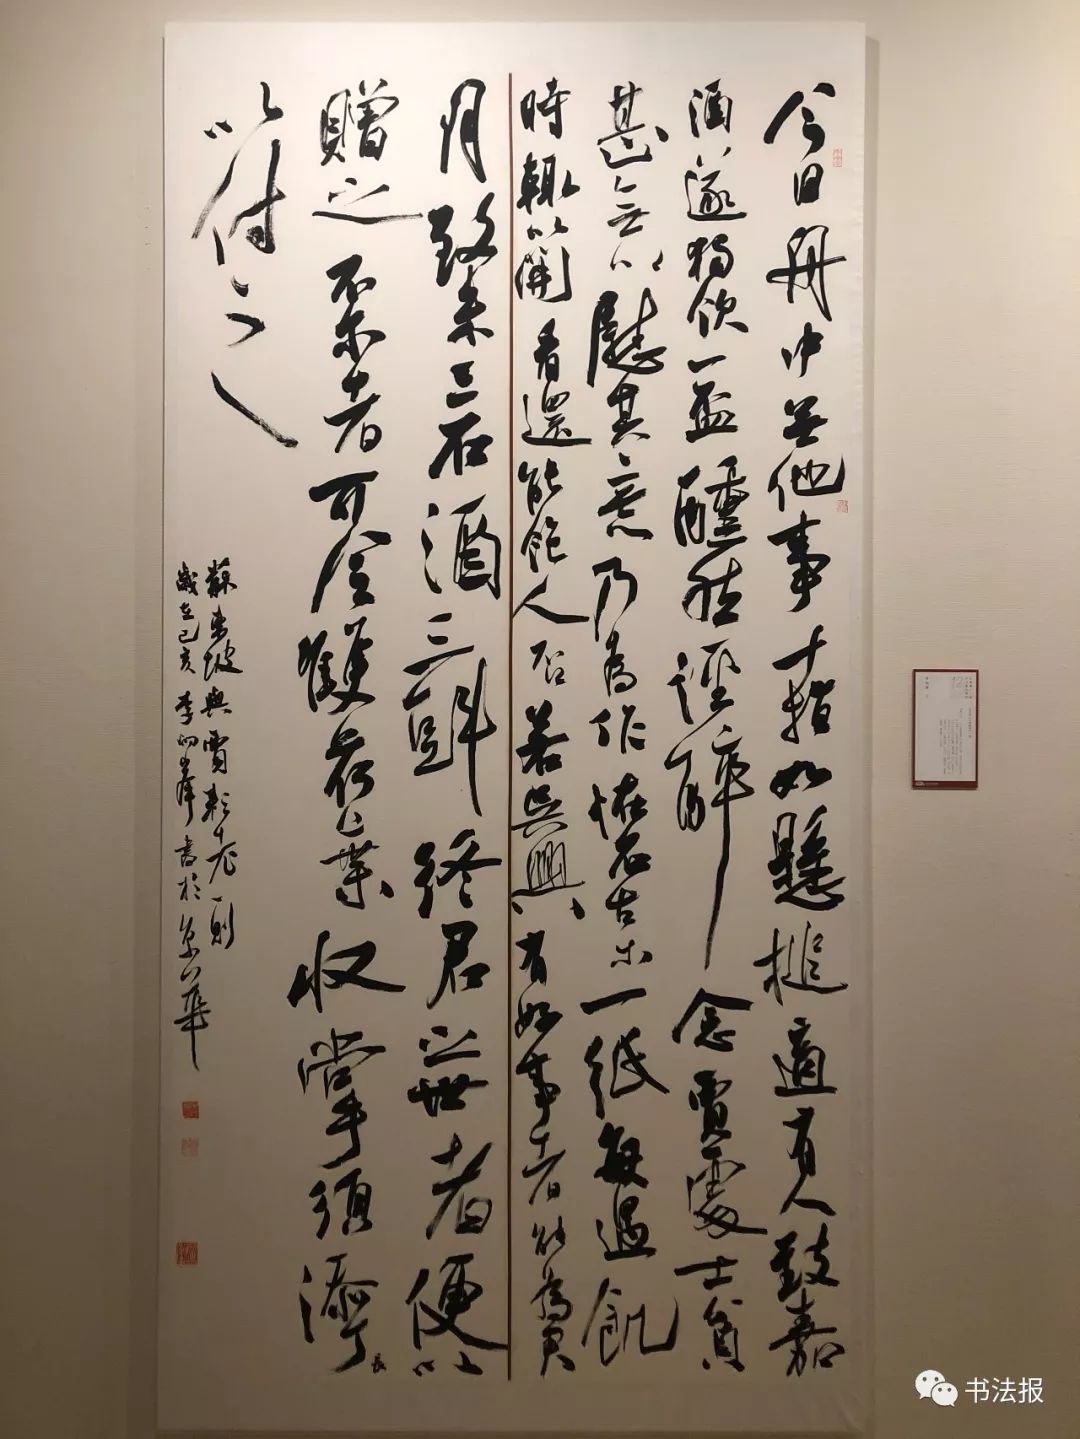 今日舟中無他事十指如懸槌適有人致嘉
酒遂獨飲一盃醺然徑醉念賈處士貧
甚無以慰其意乃為作怪石古木一紙每遇飢
時輒以開看還能飽人否若吳興有好事者能為君
月致米三石酒三斗終君之世者便以
贈之不尔者可令雙荷葉收掌須添丁長
以付之
蘇東坡與賈耘老一則
歲在己亥李峰書於京華
书法报